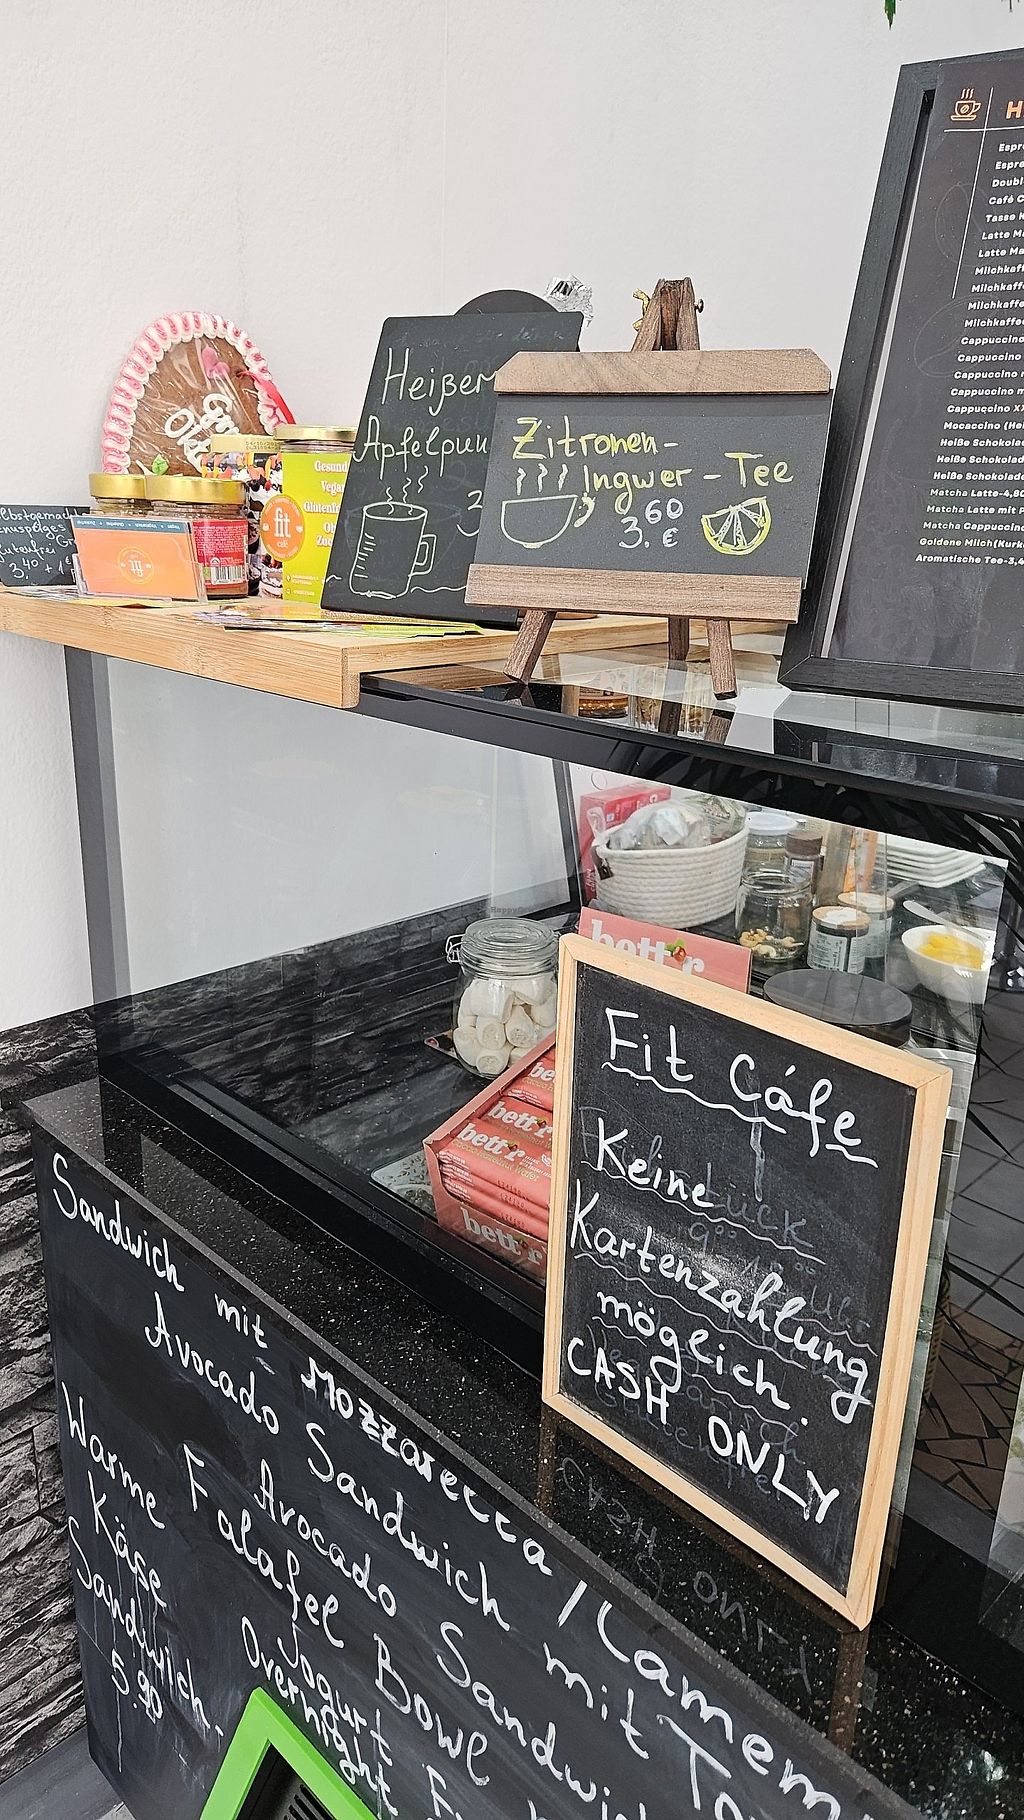 Heißer
Apfelpun
Zitronen-
Ingwer-Tee
3,60
€
Espre
Espre
Doubl
Café C
Tasse K
Latte Ma
Latte Ma
Milchkaffe
Milchkaffe
Milchkaffe
Milchkaffee
Cappuccino
Cappuccino
Cappuccino m
Cappuccino m
Cappuccino XX
Mocaccino (Hei
Heiße Schokolad
Heiße Schokolade
Heiße Schokolade
Matcha Latte-4,80
Matcha Latte mit P
Matcha Cappuccino
Goldene Milch(Kurk
Aromatische Tee-3,4
Gesund
Vegan
Glutenfre
fit
café
3,40
bett'r
bett'r
bett'r
bett'r
Fit Cáfe
Keine
Kartenzahlung
möglich.
CASH ONLY
Sandwich mit Mozzarella / Camem
Avocado Sandwich mit To
Avocado Sandwich
Falafel Bowl
Jogurt
Overnight
Warme
Käse
Sandwich.
5.90